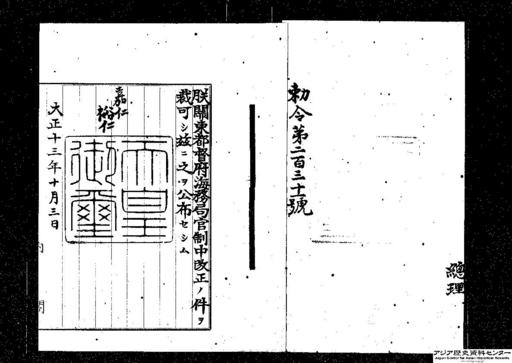 勅令第二百三十號
總理
朕關東都督府海務局官制中改正ノ件ヲ
裁可シ茲ニ之ヲ公布セシム
嘉仁
裕仁
天皇
御璽
大正十三年十月三日
アジア歴史資料センター
Japan Center for Asian Historical Records